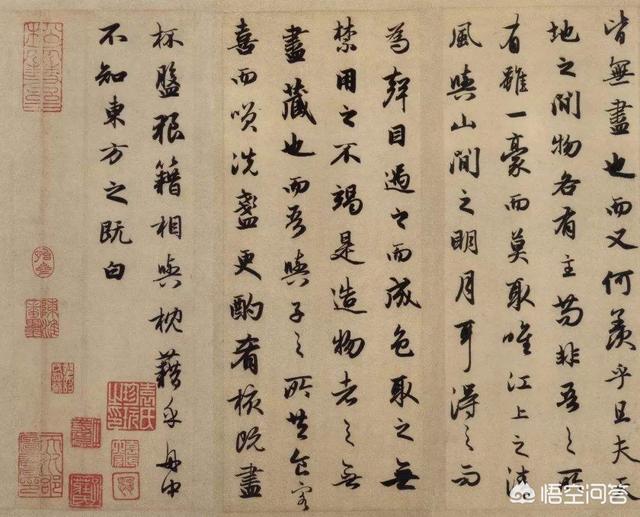 皆無盡也而又何羨乎且夫天
地之間物各有主苟非吾之所
有雖一豪而莫取唯江上之清
風與山間之明月耳得之而
為聲目遇之而成色取之無
禁用之不竭是造物者之無
盡藏也而吾與子之所共食客
喜而笑洗盞更酌肴核既盡
杯盤狼籍相與枕藉乎舟中
不知東方之既白
悟空问答